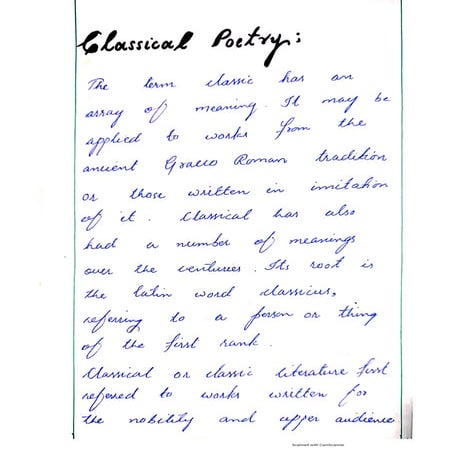 Classical Poetry:
The term classic has an
array of meaning. It may be
applied to works from the
ancient Graeco Roman tradition
or those written in imitation
of it. Classical has also
had a number of meanings
over the centurees. Its root is
the latin word classicus,
referring to a person or thing
of the first rank.
Classical or classic literature first
refered to works written for
the nobility and upper audience.
Scanned with CamScanner